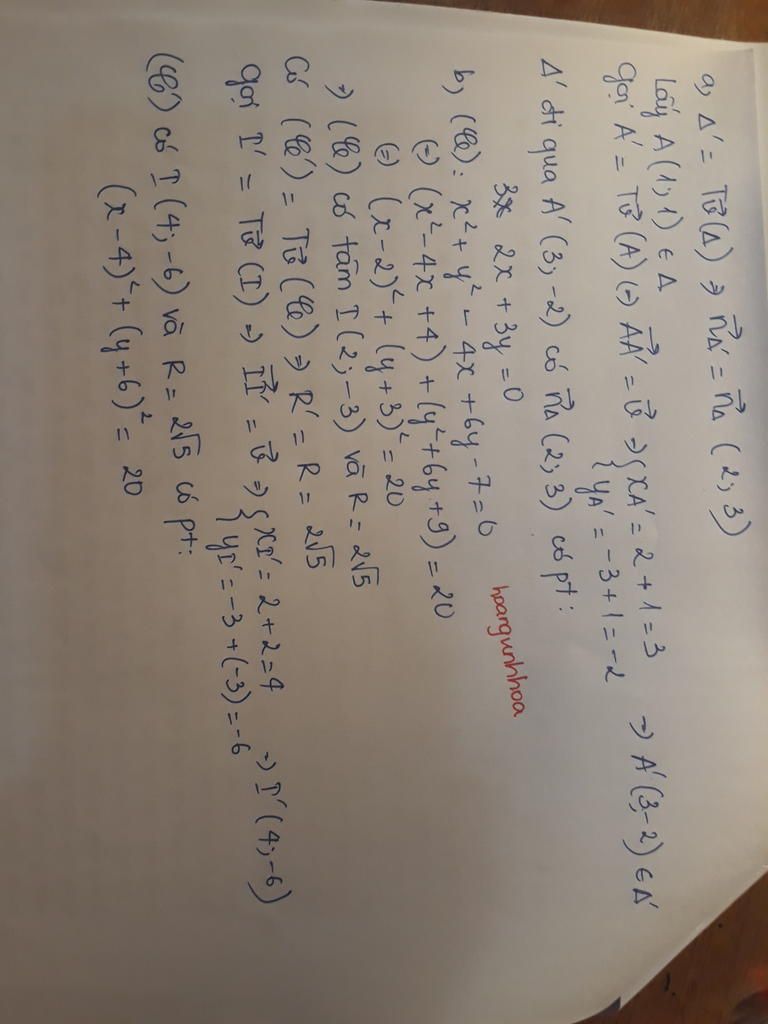 a, Δ' = Tv⃗(Δ) ⇒ n⃗Δ' = n⃗Δ (2; 3)
Lấy A(1; 1) ∈ Δ
gọi A' = Tv⃗(A) (=) AA'⃗ = v⃗ ⇒ { xA' = 2 + 1 = 3
yA' = -3 + 1 = -2 ⇒ A'(3; -2) ∈ Δ'
Δ' đi qua A'(3; -2) có n⃗Δ (2; 3) có pt:
2x + 3y = 0
b, (C): x² + y² - 4x + 6y - 7 = 0
(=) (x² - 4x + 4) + (y² + 6y + 9) = 20
(=) (x - 2)² + (y + 3)² = 20
⇒ (C) có tâm I(2; -3) và R = 2√5
Có (C') = Tv⃗(C) ⇒ R' = R = 2√5
gọi I' = Tv⃗(I) ⇒ II'⃗ = v⃗ ⇒ { xI' = 2 + 2 = 4
yI' = -3 + (-3) = -6 ⇒ I'(4; -6)
(C') có I(4; -6) và R = 2√5 có pt:
(x - 4)² + (y + 6)² = 20
hoangunhhoa